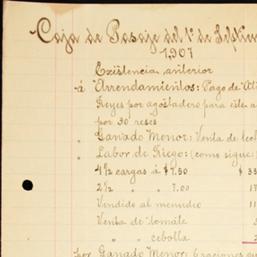 Caja de Pasaje del 1º de Septiem
1,907
Existencia anterior
á Arrendamientos: Pago de
Reyes por agostadero para este a
por 30 reses
" Ganado Menor: Venta de lech
" Labor de Riego: (como sigue)
4½ cargas á $7.50 $ 33
2½ " " 7.00 17
Vendido al menudeo 11
Venta de tomate
" " cebolla
por Ganado Menor: 6 raciones